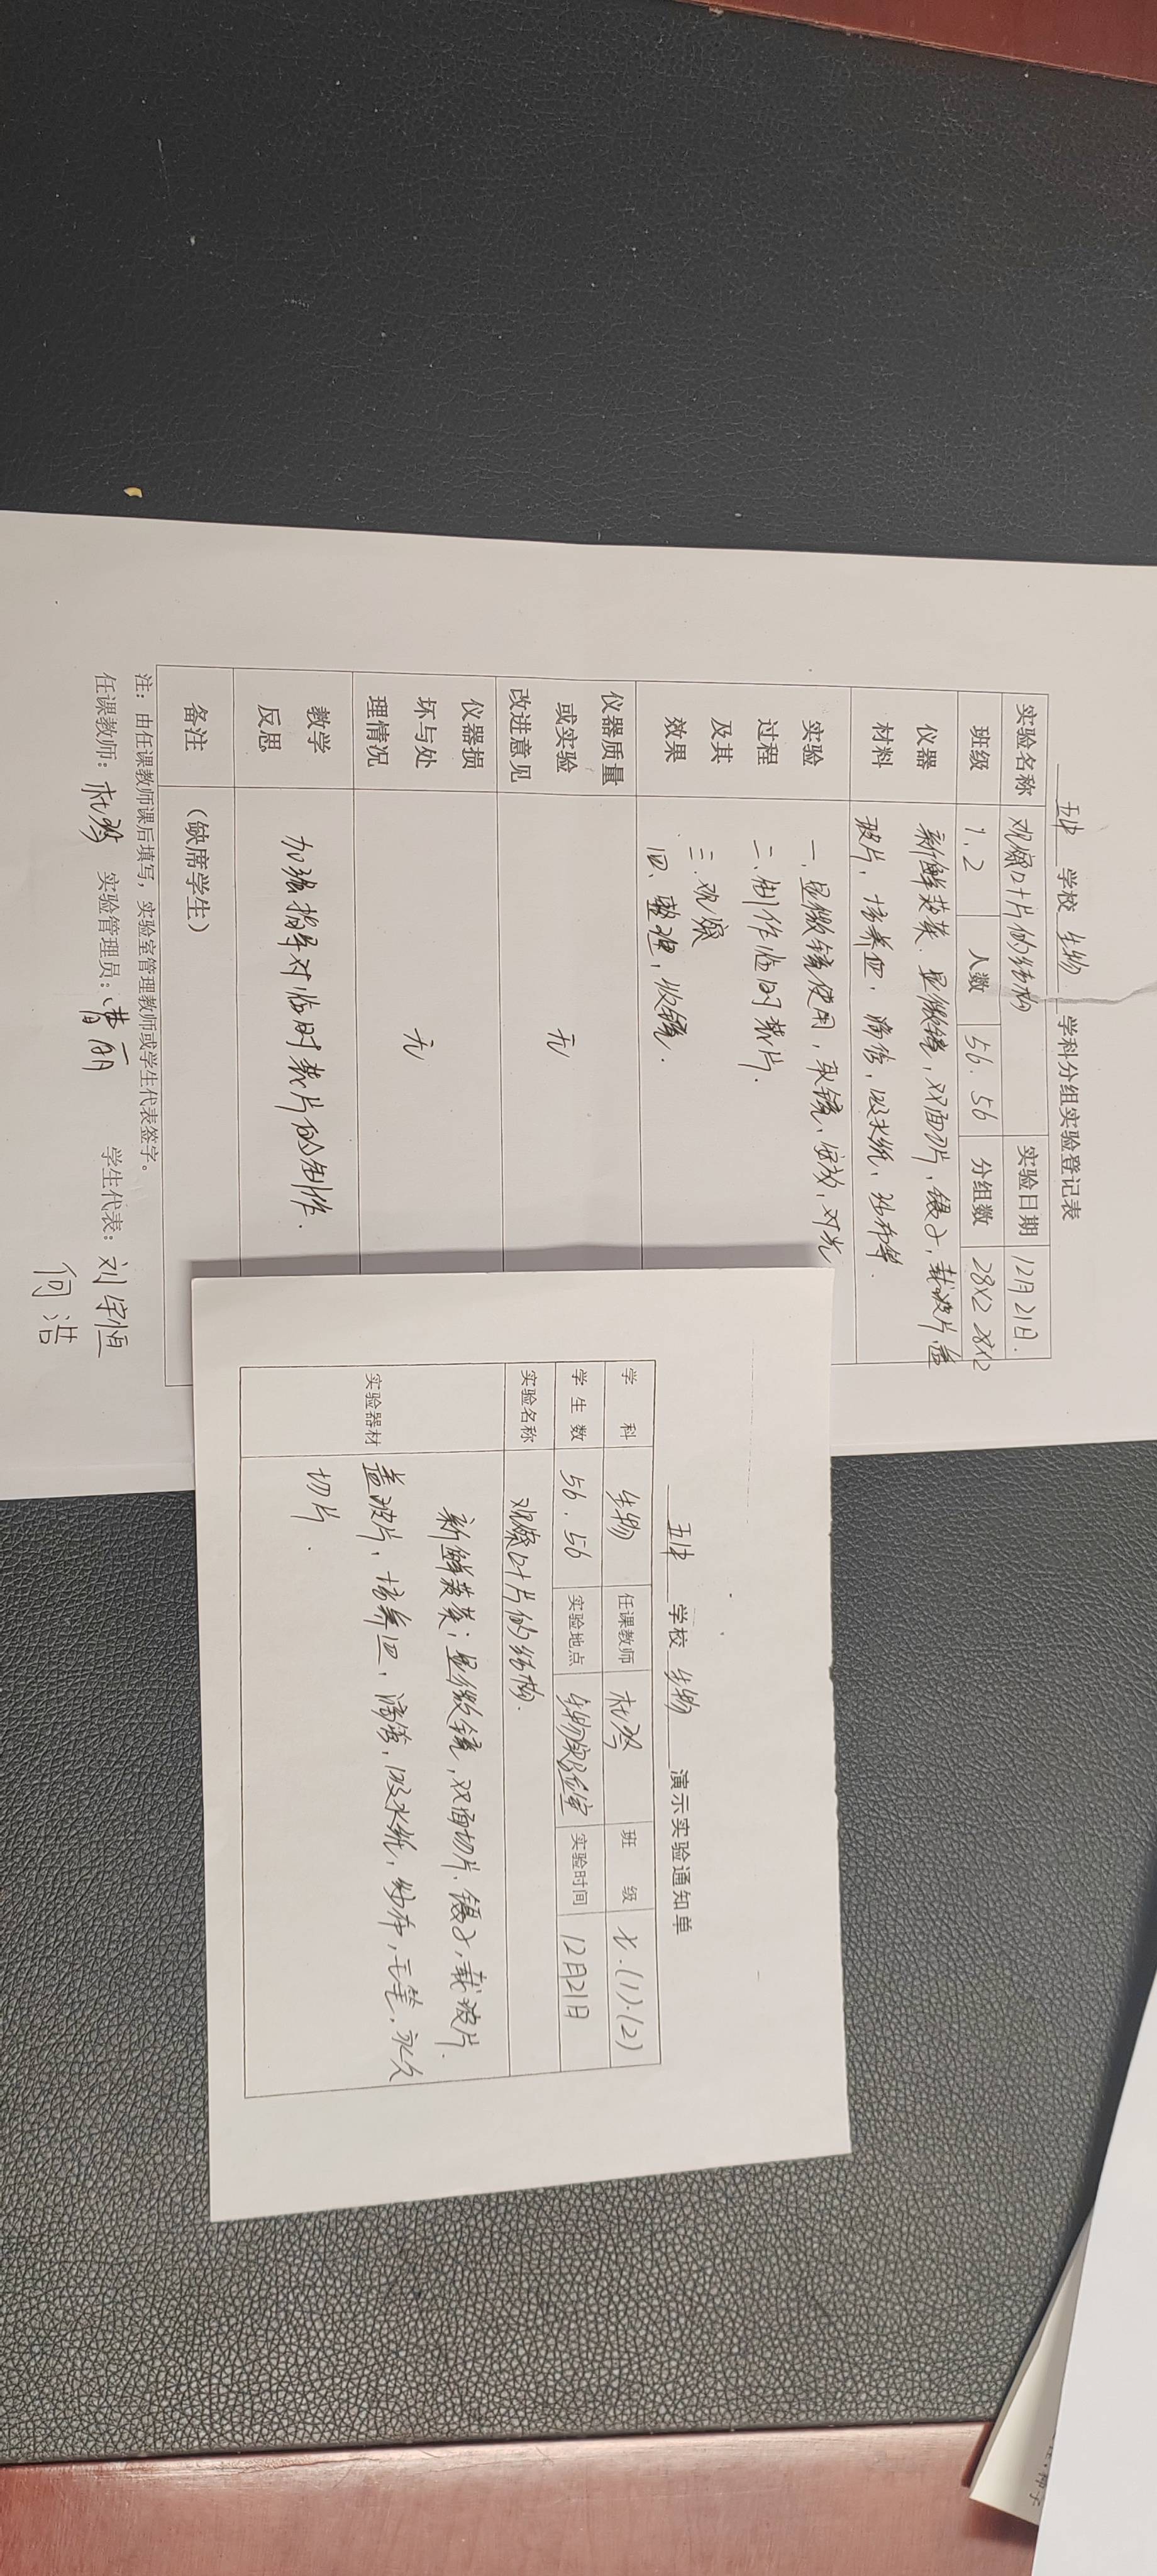 五中 学校 生物 学科分组实验登记表
实验名称 观察叶片的结构 实验日期 12月21日.
班级 1.2 人数 56.56 分组数 28×2 28×2
仪器材料 新鲜菠菜、显微镜,双面刀片,镊子,载玻片,盖
玻片,培养皿,滴管,吸水纸,纱布等.
实验过程及其效果 一、显微镜使用,取镜,安放,对光
二、制作临时装片.
三、观察
四、整理,收镜.
仪器质量或实验改进意见 无
仪器损坏与处理情况 无
教学反思 加强指导对临时装片的制作.
备注 (缺席学生)
注:由任课教师课后填写,实验室管理教师或学生代表签字。
任课教师: 实验管理员:曹丽 学生代表:刘宇恒
何浩
五中 学校 生物 演示实验通知单
学科 生物 任课教师 班级 七.(1).(2)
学生数 56.56 实验地点 生物实验室 实验时间 12月21日
实验名称 观察叶片的结构.
实验器材 新鲜菠菜;显微镜,双面切片、镊子,载玻片.
盖玻片,培养皿,滴管,吸水纸,纱布,毛笔,永久
切片.